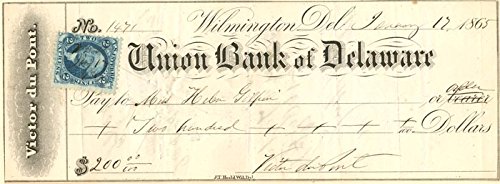 No. 1471 Wilmington, Del. January 17 1865
Victor du Pont.
Union Bank of Delaware
Pay to Mrs Gilpin or bearer order
Two hundred Dollars
$200 00/100 Victor du Pont